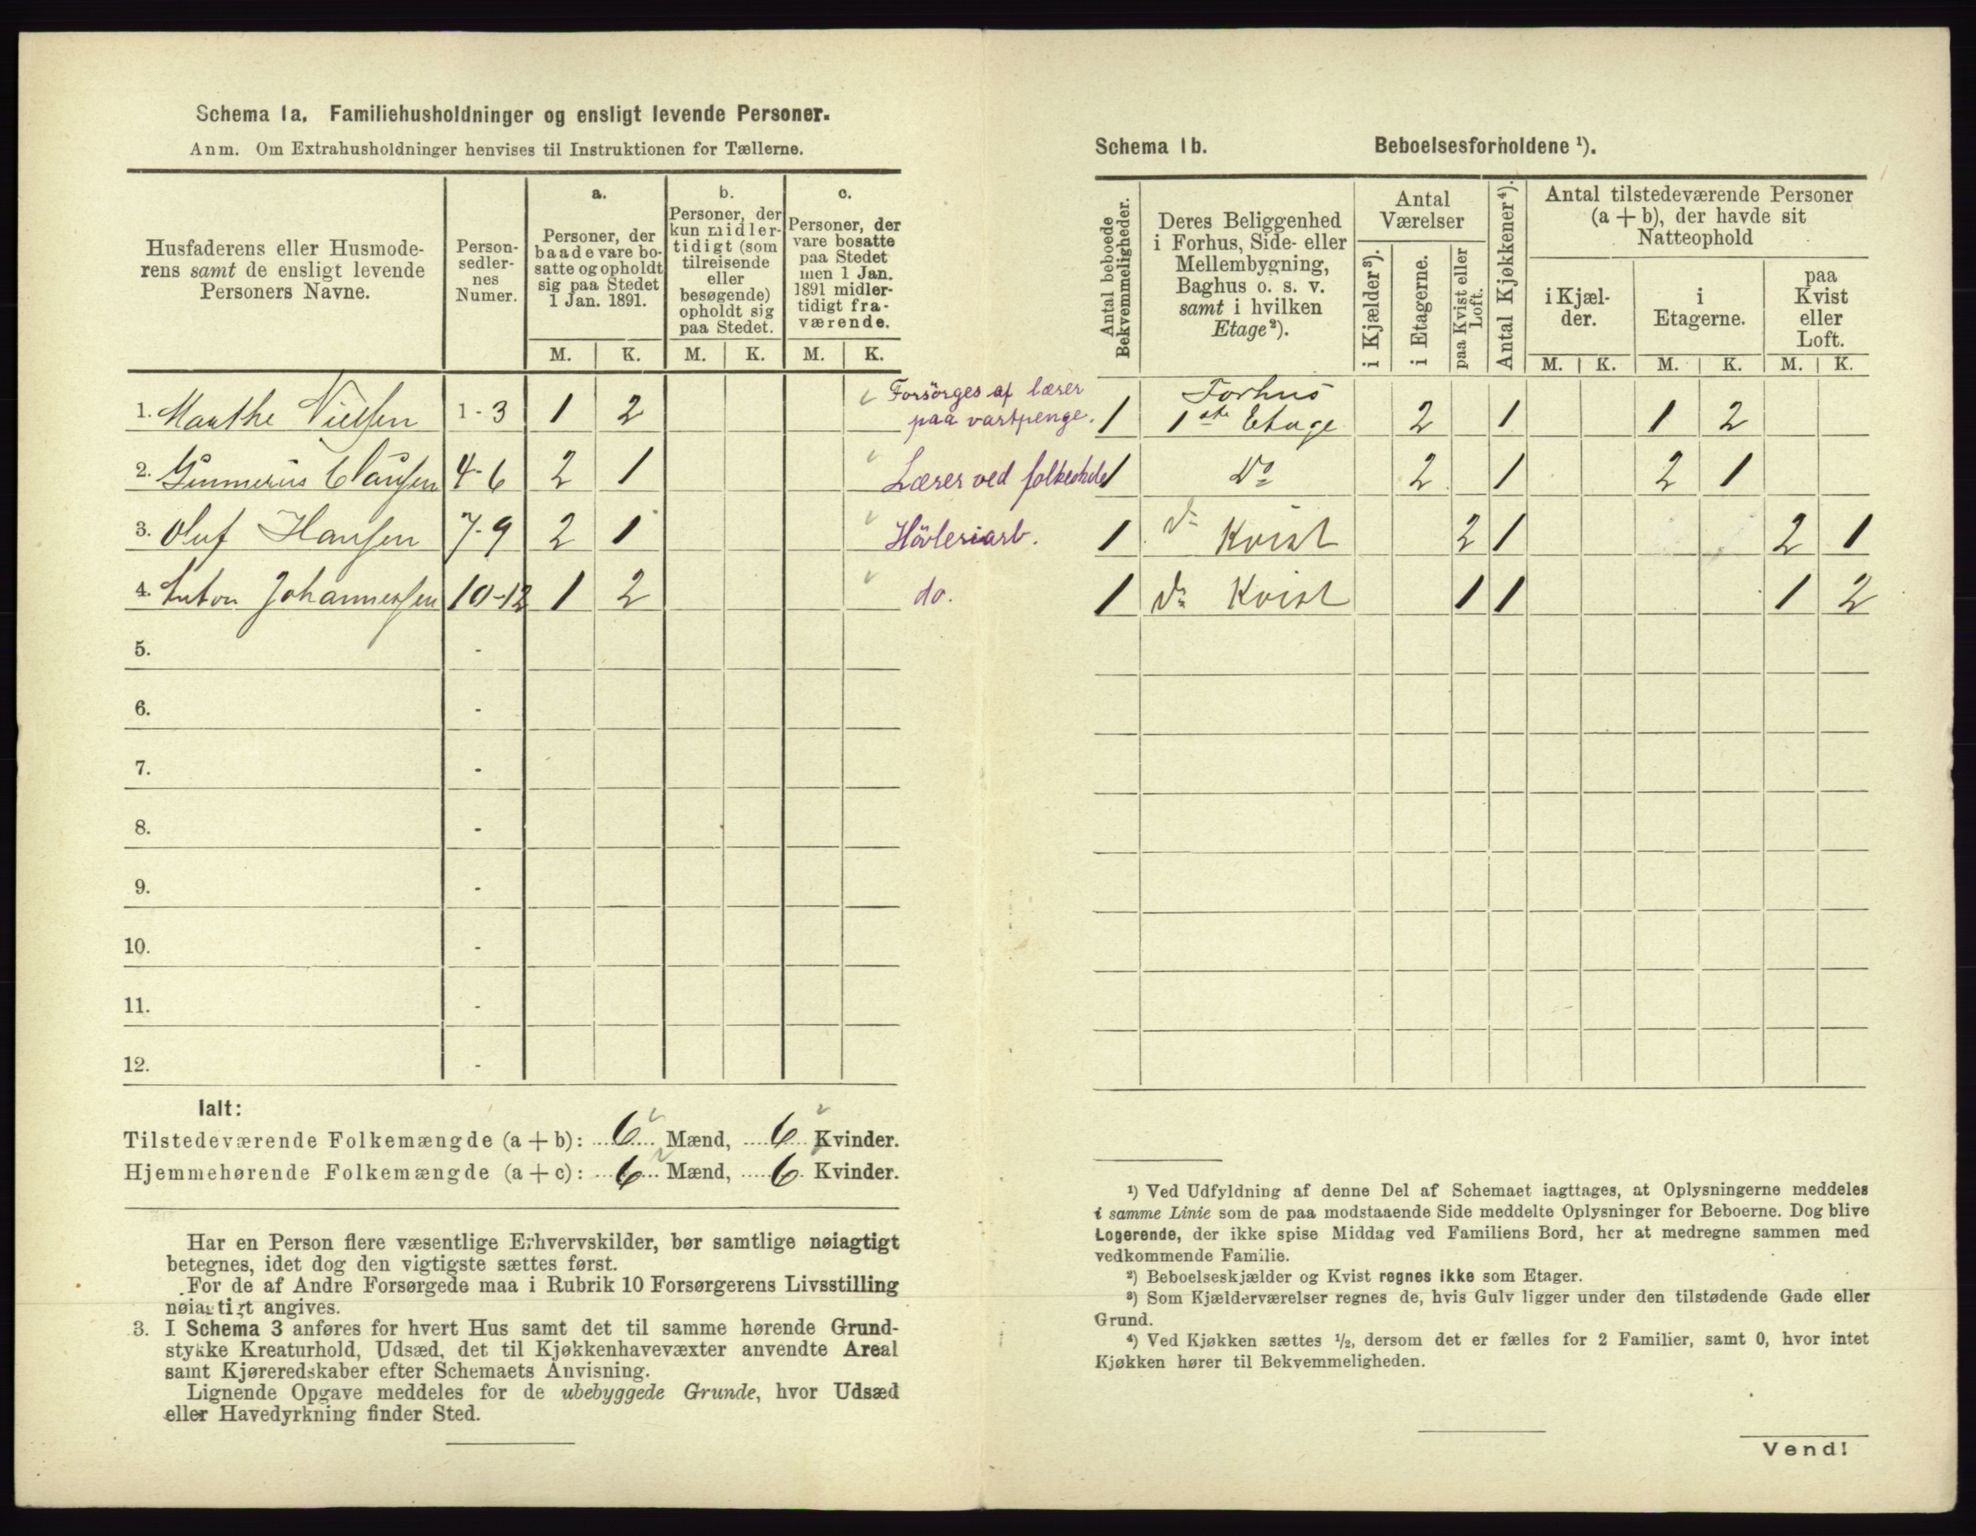 Schema 1a. Familiehusholdninger og ensligt levende Personer.
Anm. Om Extrahusholdninger henvises til Instruktionen for Tællerne.
Husfaderens eller Husmoderens samt de ensligt levende Personers Navne.
Personsedlernes Numer.
a. Personer, der baade vare bosatte og opholdt sig paa Stedet 1 Jan. 1891.
b. Personer, der kun midlertidigt (som tilreisende eller besøgende) opholdt sig paa Stedet.
c. Personer, der vare bosatte paa Stedet men 1 Jan. 1891 midlertidigt fraværende.
M. K. M. K. M. K.
1. Marthe Nielsen 1-3 1 2 Forsörges af lærer paa vartpenge.
2. Gunnerius Clausen 4-6 2 1 Lærer ved folkeskole
3. Oluf Hansen 7-9 2 1 Hövleriarb.
4. Anton Johannessen 10-12 1 2 do.
5. -
6. -
7. -
8. -
9. -
10. -
11. -
12. -
Ialt:
Tilstedeværende Folkemængde (a + b): 6 Mænd, 6 Kvinder.
Hjemmehørende Folkemængde (a + c): 6 Mænd, 6 Kvinder.
Har en Person flere væsentlige Erhvervskilder, bør samtlige nøiagtigt
betegnes, idet dog den vigtigste sættes først.
For de af Andre Forsørgede maa i Rubrik 10 Forsørgerens Livsstilling
nøiagtigt angives.
3. I Schema 3 anføres for hvert Hus samt det til samme hørende Grund-
stykke Kreaturhold, Udsæd, det til Kjøkkenhavevæxter anvendte Areal
samt Kjøreredskaber efter Schemaets Anvisning.
Lignende Opgave meddeles for de ubebyggede Grunde, hvor Udsæd
eller Havedyrkning finder Sted.
Schema 1b. Beboelsesforholdene ¹).
Antal beboede Bekvemmeligheder.
Deres Beliggenhed i Forhus, Side- eller Mellembygning, Baghus o. s. v. samt i hvilken Etage²).
Antal Værelser
i Kjælder³).
i Etagerne.
paa Kvist eller Loft.
Antal Kjøkkener⁴).
Antal tilstedeværende Personer (a + b), der havde sit Natteophold
i Kjælder.
i Etagerne.
paa Kvist eller Loft.
M. K. M. K. M. K.
1 Forhus 1ste Etage 2 1 1 2
1 Do 2 1 2 1
1 do Kvist 2 1 2 1
1 do Kvist 1 1 1 2
¹) Ved Udfyldning af denne Del af Schemaet iagttages, at Oplysningerne meddeles
i samme Linie som de paa modstaaende Side meddelte Oplysninger for Beboerne. Dog blive
Logerende, der ikke spise Middag ved Familiens Bord, her at medregne sammen med
vedkommende Familie.
²) Beboelseskjælder og Kvist regnes ikke som Etager.
³) Som Kjælderværelser regnes de, hvis Gulv ligger under den tilstødende Gade eller
Grund.
⁴) Ved Kjøkken sættes ½, dersom det er fælles for 2 Familier, samt 0, hvor intet
Kjøkken hører til Bekvemmeligheden.
Vend!